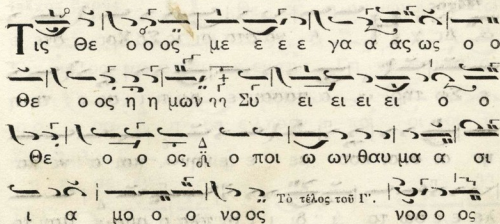 Τις Θε ο ο ος με ε ε ε γα α ας ως ο ο
Θε ο ος η η μων ηη Συ ει ει ει ει ο ο
Θε ο ο ος ο ποι ω ων θαυ μα α σι
ι α μο ο ο νο ος Τὸ τέλος τοῦ Γʹ. νοο ο ος